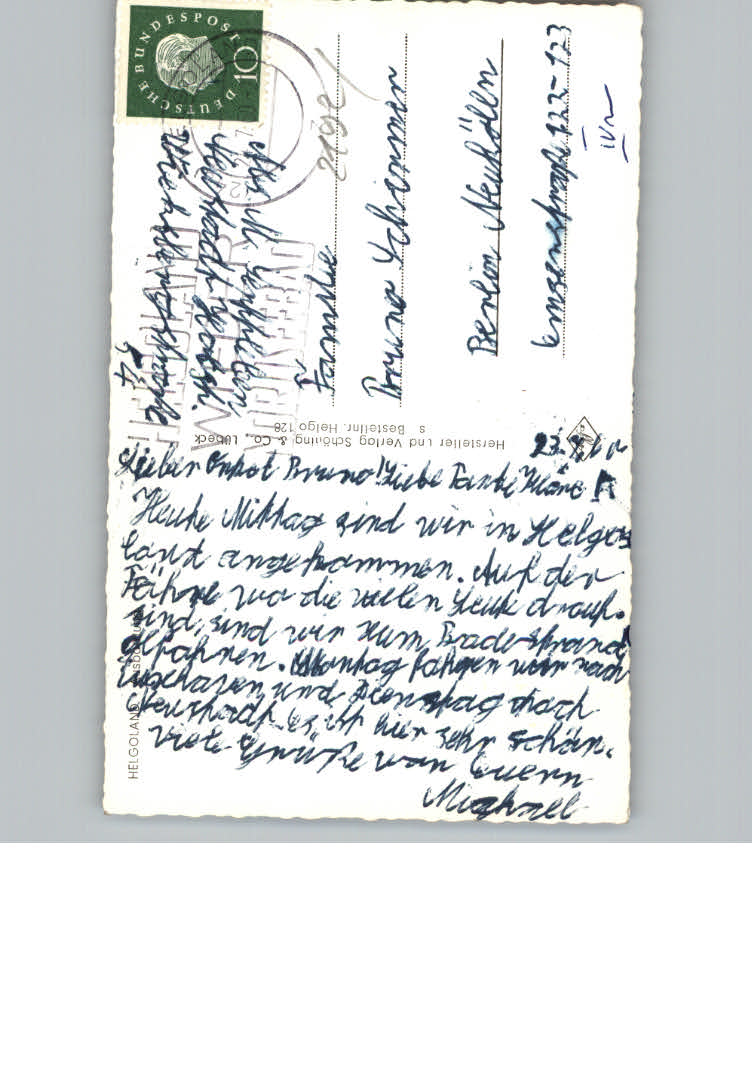 Lieber Onkel Bruno! Liebe Tante
Heute Mittag sind wir in Helgo
land angekommen. Auf der
Fähre wo die vielen Leute drauf
sind, sind wir zum Badestrand
gefahren. Montag fahren wir nach
Cuxhaven und Dienstag nach
Neustadt. Es ist hier sehr schön.
Viele Grüße von Euern
Michael
Familie
Bruno Schirmer
Berlin Neukölln
Emserstraße 122-123
Neustadt
54
DEUTSCHE BUNDESPOST
10
HELGOLAND
Hersteller und Verlag Schöning & Co., Lübeck
s Bestellnr. Helgo 128
HELGOLAND